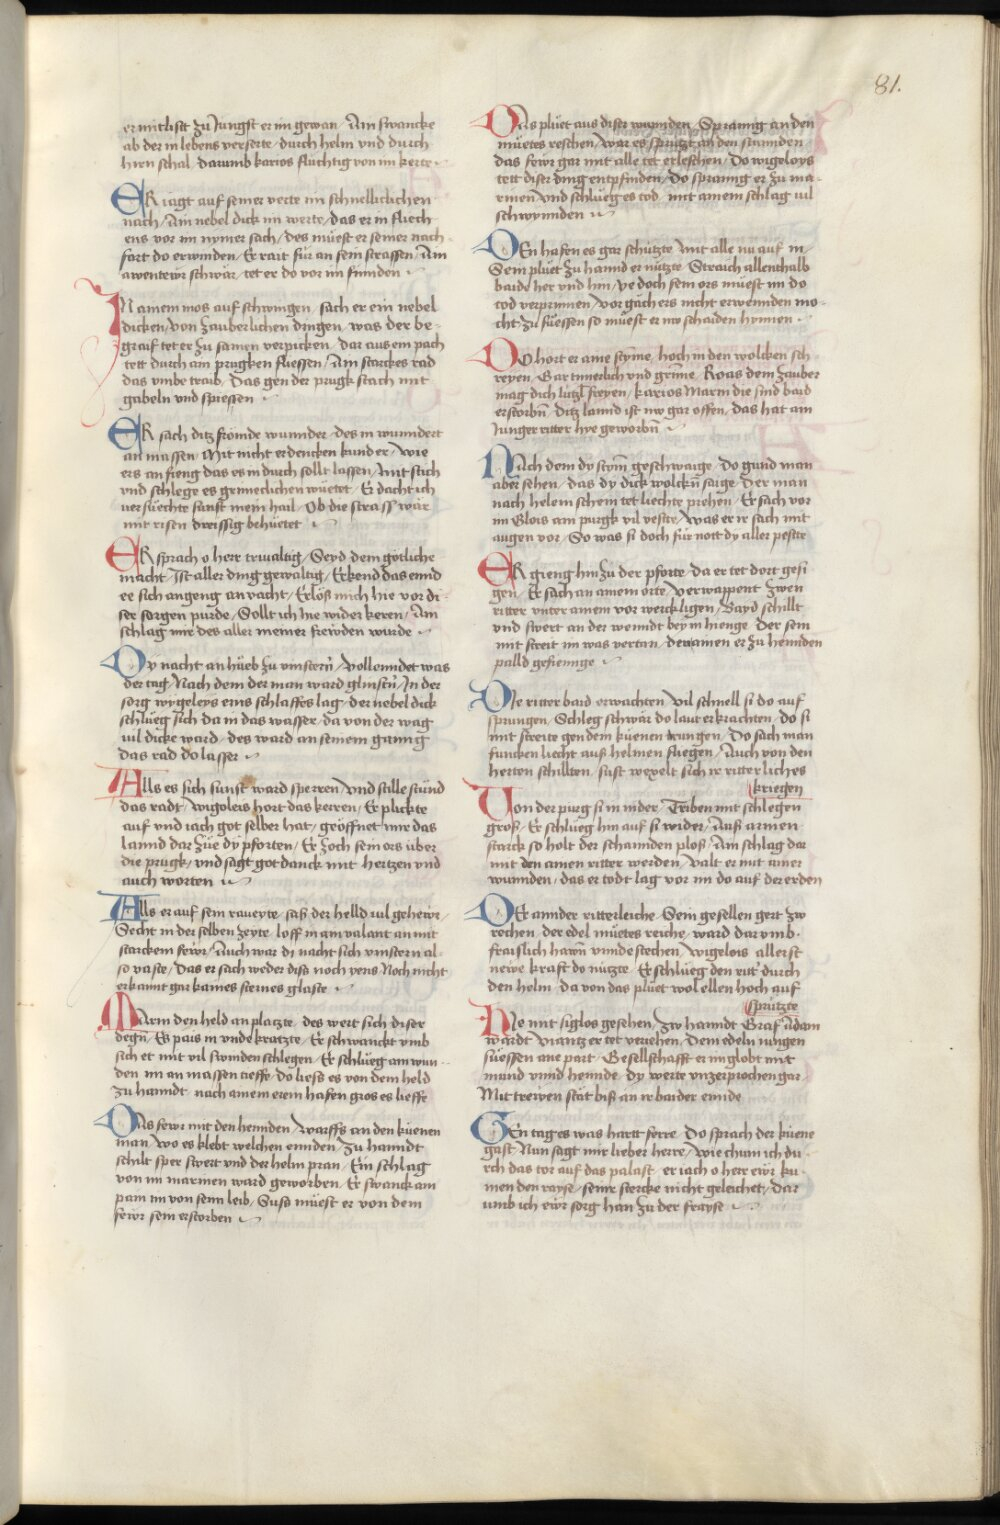 81.
er mit list zu Jungst er im gewan / Am swancke
ab der in lebens verserte / durch helm vnd durch
hirn schal / darumb karios fluchtig von im kerte
ER iagt auf seiner verte im schnellichlichen
nach / Am nebel dick im werte / das er in fliech
ens vor im nymer sach / des muest er seiner nach
fart do erwinden / Er rait für an sein strassen / Am
awentewr schwär / tet er do vor im finnden
IN ainem mos auf schwingen / sach er ein nebel
dicken / von zauberlichen dingen / was der be-
graif tet er zu samen verpicken / dar aus ein pach
tett durch ain prugken fliessen / Am starckes rad
das vmbe traib / Das gen der prugk stach mit
gabeln vnd spiessen
ER sach ditz frömde wunnder / des in wunndert
an massen / Mit nicht erdencken kund er / wie
ers an fieng das es in durch sollt lassen / mit stich
vnd schlege es grimmeclichen wüetet / Er dacht ich
versuechte sanft mein hail / Ob die strass wär
mit risen dreissig behüetet
ER sprach o herr trivaltig / Seyd dein götliche
macht / Ist aller ding gewaltig / Erkend das ennd
ee sich angeng anvacht / Erlös mich hie vor di-
ser sorgen purde / Sollt ich hie wider keren / Am
schlag mir des aller meiner frewden wurde
Dy nacht an hueb zu vinstern / vollenndet was
der tag / Nach dem der man ward glinstn / In der
sorg wygeleys eins schlaffes lag / der nebel dick
schlueg sich da in das wasser / da von der wag
vil dicke ward / des ward an seinem ganng
das rad do lasser
Alls es sich sunst ward sperren / vnd stille stund
das radt / wigoleis hort das kerren / Er plickte
auf vnd iach got selber hat / geöffnet mir das
lannd dar zue dy pforten / Er zoch sein ors über
die prugk / vnd sagt got danck mit hertzen vnd
auch worten
Alls er auf sein raueyte / sass der helld vil gehewr /
Secht in der selben zeyte / loff in ain valant an mit
starckem fewr / Auch war di nacht sich vinstern al-
so vaste / Das er sach weder diss noch yens Noch nicht
erkannt gar kaines sternes glaste
Marm den held an platzte / des wert sich diser
degn / Es pais in vnde kratzte / Er schwanckt vmb
sich et mit vil swinden schlegen / Er schlueg am wun
den im an massen tieffe / do liess es von dem held
zu hanndt / nach ainem erein hafen gros es lieffe
Das fewr mit den hennden / warffs an den küenen
man / wo es klebt welchen ennden / Zu hanndt
schilt sper swert vnd der helm pran / Ein schlag
von im marmen ward geworben / Er swanck am
pain im von seim leib / Suss müest er von dem
fewr sein erstorben
Das pluet aus diser wunnden / Sprannig an den
müetes reschen / war es sprützt an den stunnden
das fewr gar mit alle tet erleschen / Do wigeloys
tett diser ding entpfinden / Do sprannig er zu ma-
rmen vnd schlueg es tod / mit ainem schlag vil
schwynnden
DEn hafen es gar schutzte / mit alle nu auf in /
Sein pluet zu hannd er nützte / Straich allenthalb
baide her vnd hin / ye doch sein ors muest im do
tod verprinnen / vor gäch ers nicht erwennden mo-
cht / zu fuessen so muest er nw schaiden hynnen
DO hort er aine stime / hoch in den wolcken sch
reyen / Gar innerlich vnd grime / Roas dein zauber
mag dich lutzl freyen / karios Marin die sind baid
erstorbn / ditz lannd ist nw gar offen / das hat am
Junger ritter hye geworbn
Nach dem dy stim geschwaige / Do gund man
aber sehen / das dy dick wolckn saige / der man
nach helem schein tet liechte prehen / Er sach vor
im Glois am purgk vil veste / was er ir sach mit
augen vor / So was si doch für nott dy aller peste
ER gieng hin zu der pforte / da er tet dort gesi-
gen / Er sach an ainem orte / verwappent zwen
ritter vnter ainem vor werck ligen / Bayd schillt
vnd swert an der wenndt bey in hienge / der sein
mit streit im was vertan / der ainen er zu hennden
palld gefiennge
DIe ritter baid erwachten / vil schnell si do auf
sprungen / Schleg schwär do laut erkrachten / do si
mit streite gen dem küenen trungen / Do sach man
funcken liecht aus helmen fliegen / Auch von den
herten schillten / sust wexelt sich ir ritterliches
kriegen
Von der purg si in nider / Triben mit schlegen
gros / Er schlueg hin auf si wider / Aus armen
starck so holt der schannden plos / Am schlag dar
mit den ainen ritter werden / valt er mit ainer
wunnden / das er todt lag vor im do auf der erden
DEr annder ritterleiche / Sein gesellen gert zw
rechen / der edel müetes reiche / ward dar vmb
fraislich hawn vnnde stechen / wigelois allerst
newe kraft do nutzte / Er schlueg den ritt durch
den helm / da von das pluet wol ellen hoch auf
sprutzte
DIe mit siglos gesehen / zw hanndt Graf Adam
wardt / viantz er tet veriehen / Dem edeln iungen
süessen ane part / Gesellschafft er im globt mit
mund vnnd hennde / dy werte vnzerprochen gar
Mit trewen stät bis an ir baider ennde
GEn tag es was hartt ferre / Do sprach der küene
gast / Nun sagt mir lieber herre / wie chum ich du-
rch das tor auf das palast / er iach o herr ewr ku-
men den rayse / seinr stercke nicht geleichet / dar
umb ich ewr sorg han zu der frayse